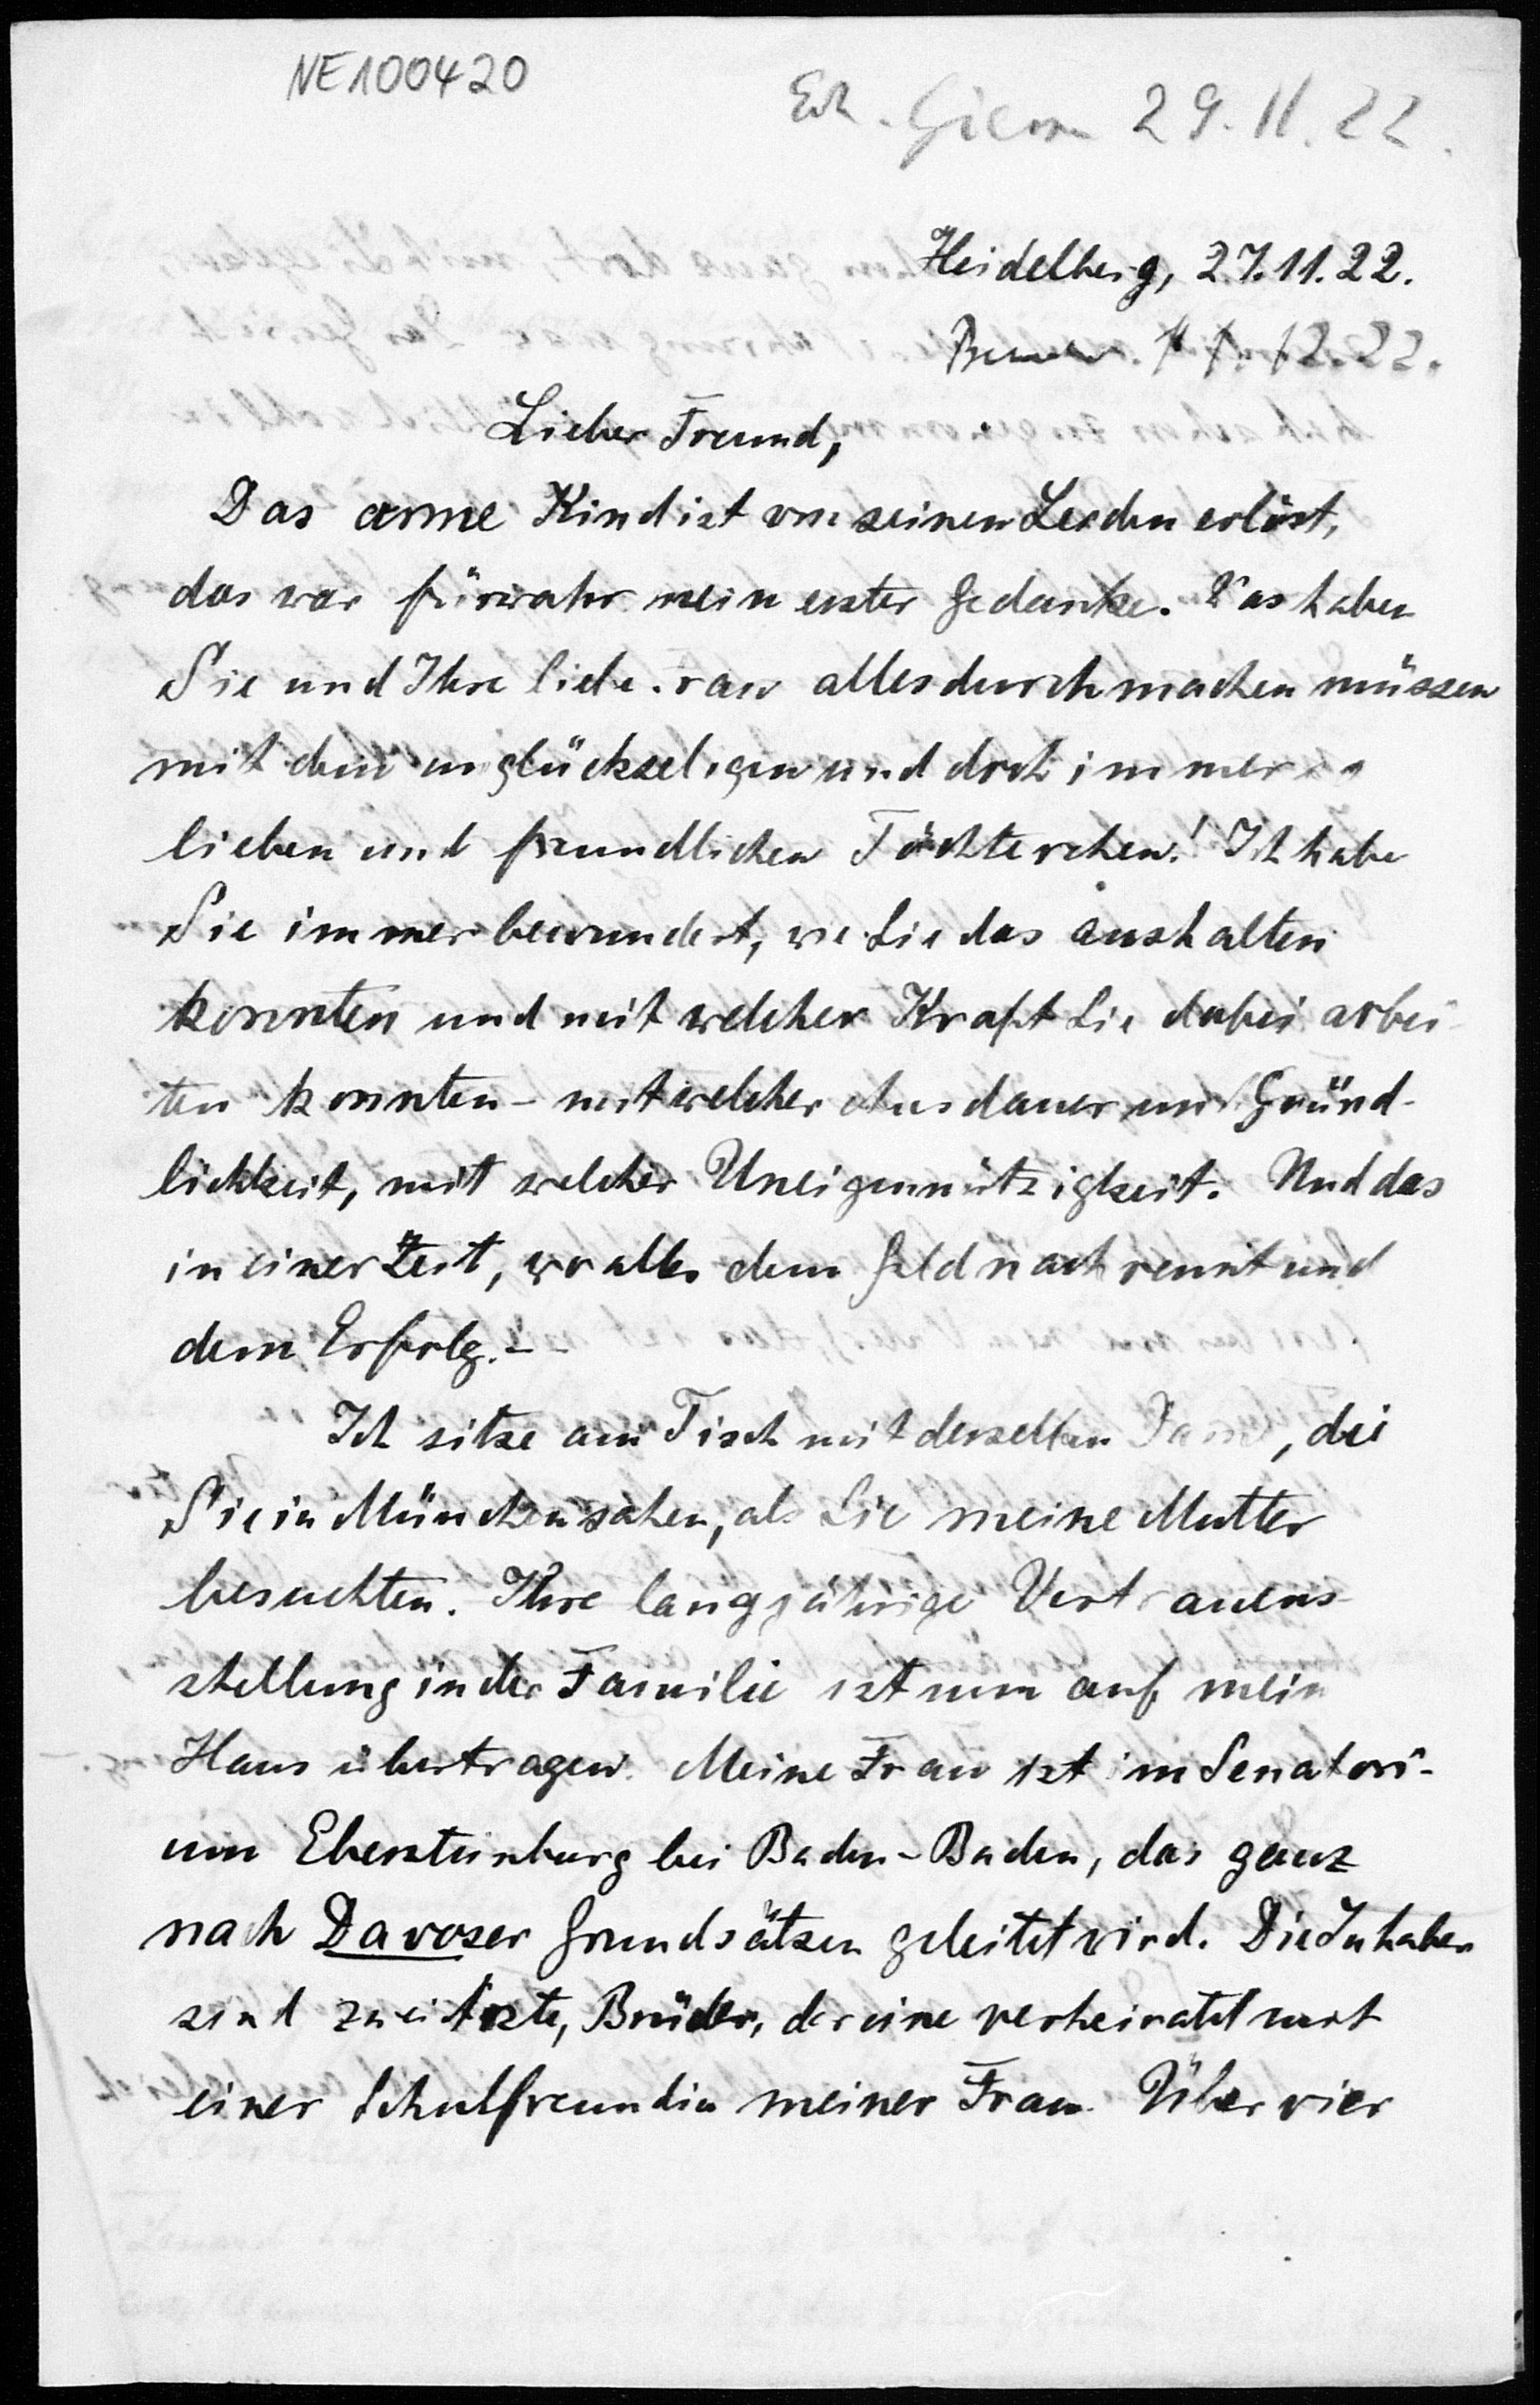 NE100420
29.11.22.
Heidelberg, 27.11.22.
12.22.
Lieber Freund,
Das arme Kind ist von seinen Leiden erlöst,
das war fürwahr mein erster Gedanke. Was haben
Sie und Ihre liebe Frau alles durchmachen müssen
mit dem unglückseligen und doch immer so
lieben und freundlichen Töchterchen! Ich habe
Sie immer bewundert, wie Sie das aushalten
konnten und mit welcher Kraft Sie dabei arbei-
ten konnten - mit welcher Ausdauer und Gründ-
lichkeit, mit welcher Uneigennützigkeit. Und das
in einer Zeit, wo alles dem Geld nachrennt und
dem Erfolg. -
Ich sitze am Tisch mit derselben Dame, die
Sie in München sahen, als Sie meine Mutter
besuchten. Ihre langjährige Vertrauens-
stellung in der Familie ist nun auf mein
Haus übertragen. Meine Frau ist im Senatori-
um Ebersteinburg bei Baden-Baden, das ganz
nach Davoser Grundsätzen geleitet wird. Die Inhaber
sind zwei Ärzte, Brüder, der eine verheiratet mit
einer Schulfreundin meiner Frau. Über vier